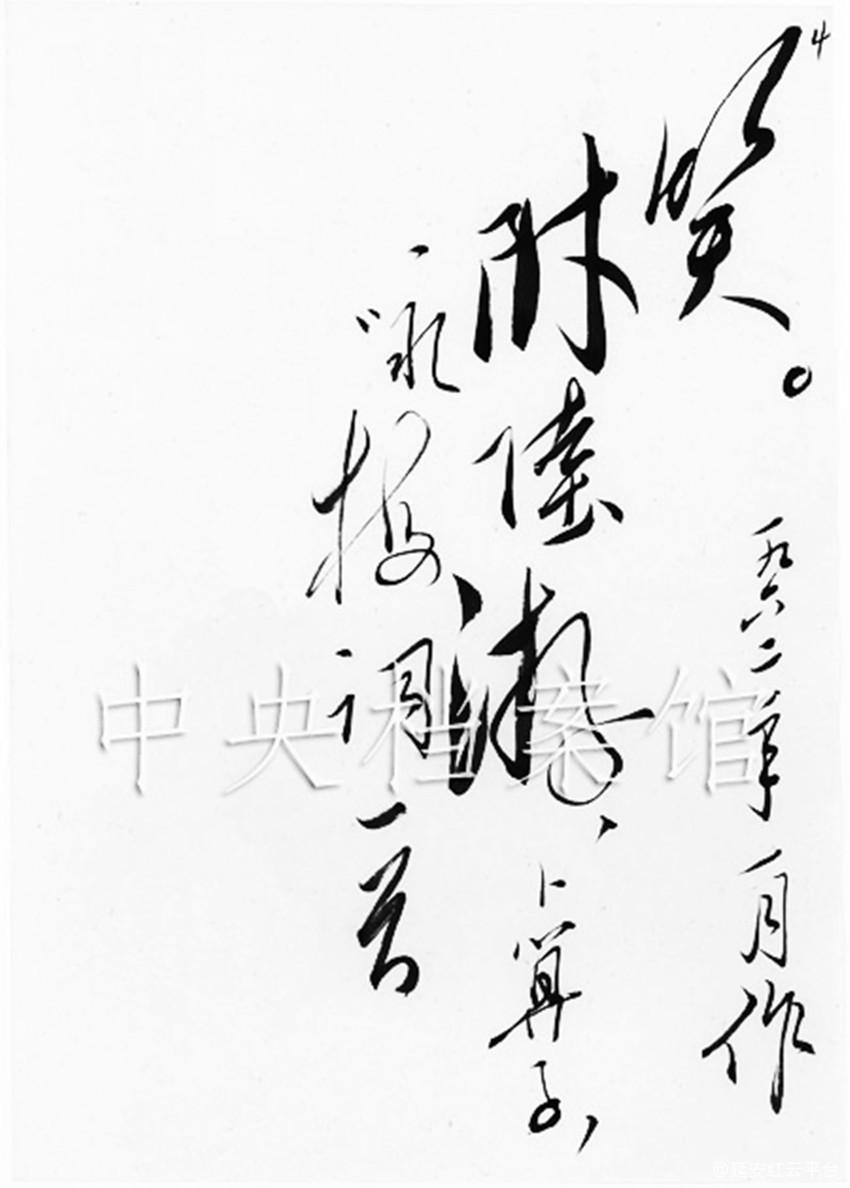 4
笑。一九六二年一月作
附陸游、卜算子、
咏梅词一首
中央档案馆
@延安红云平台